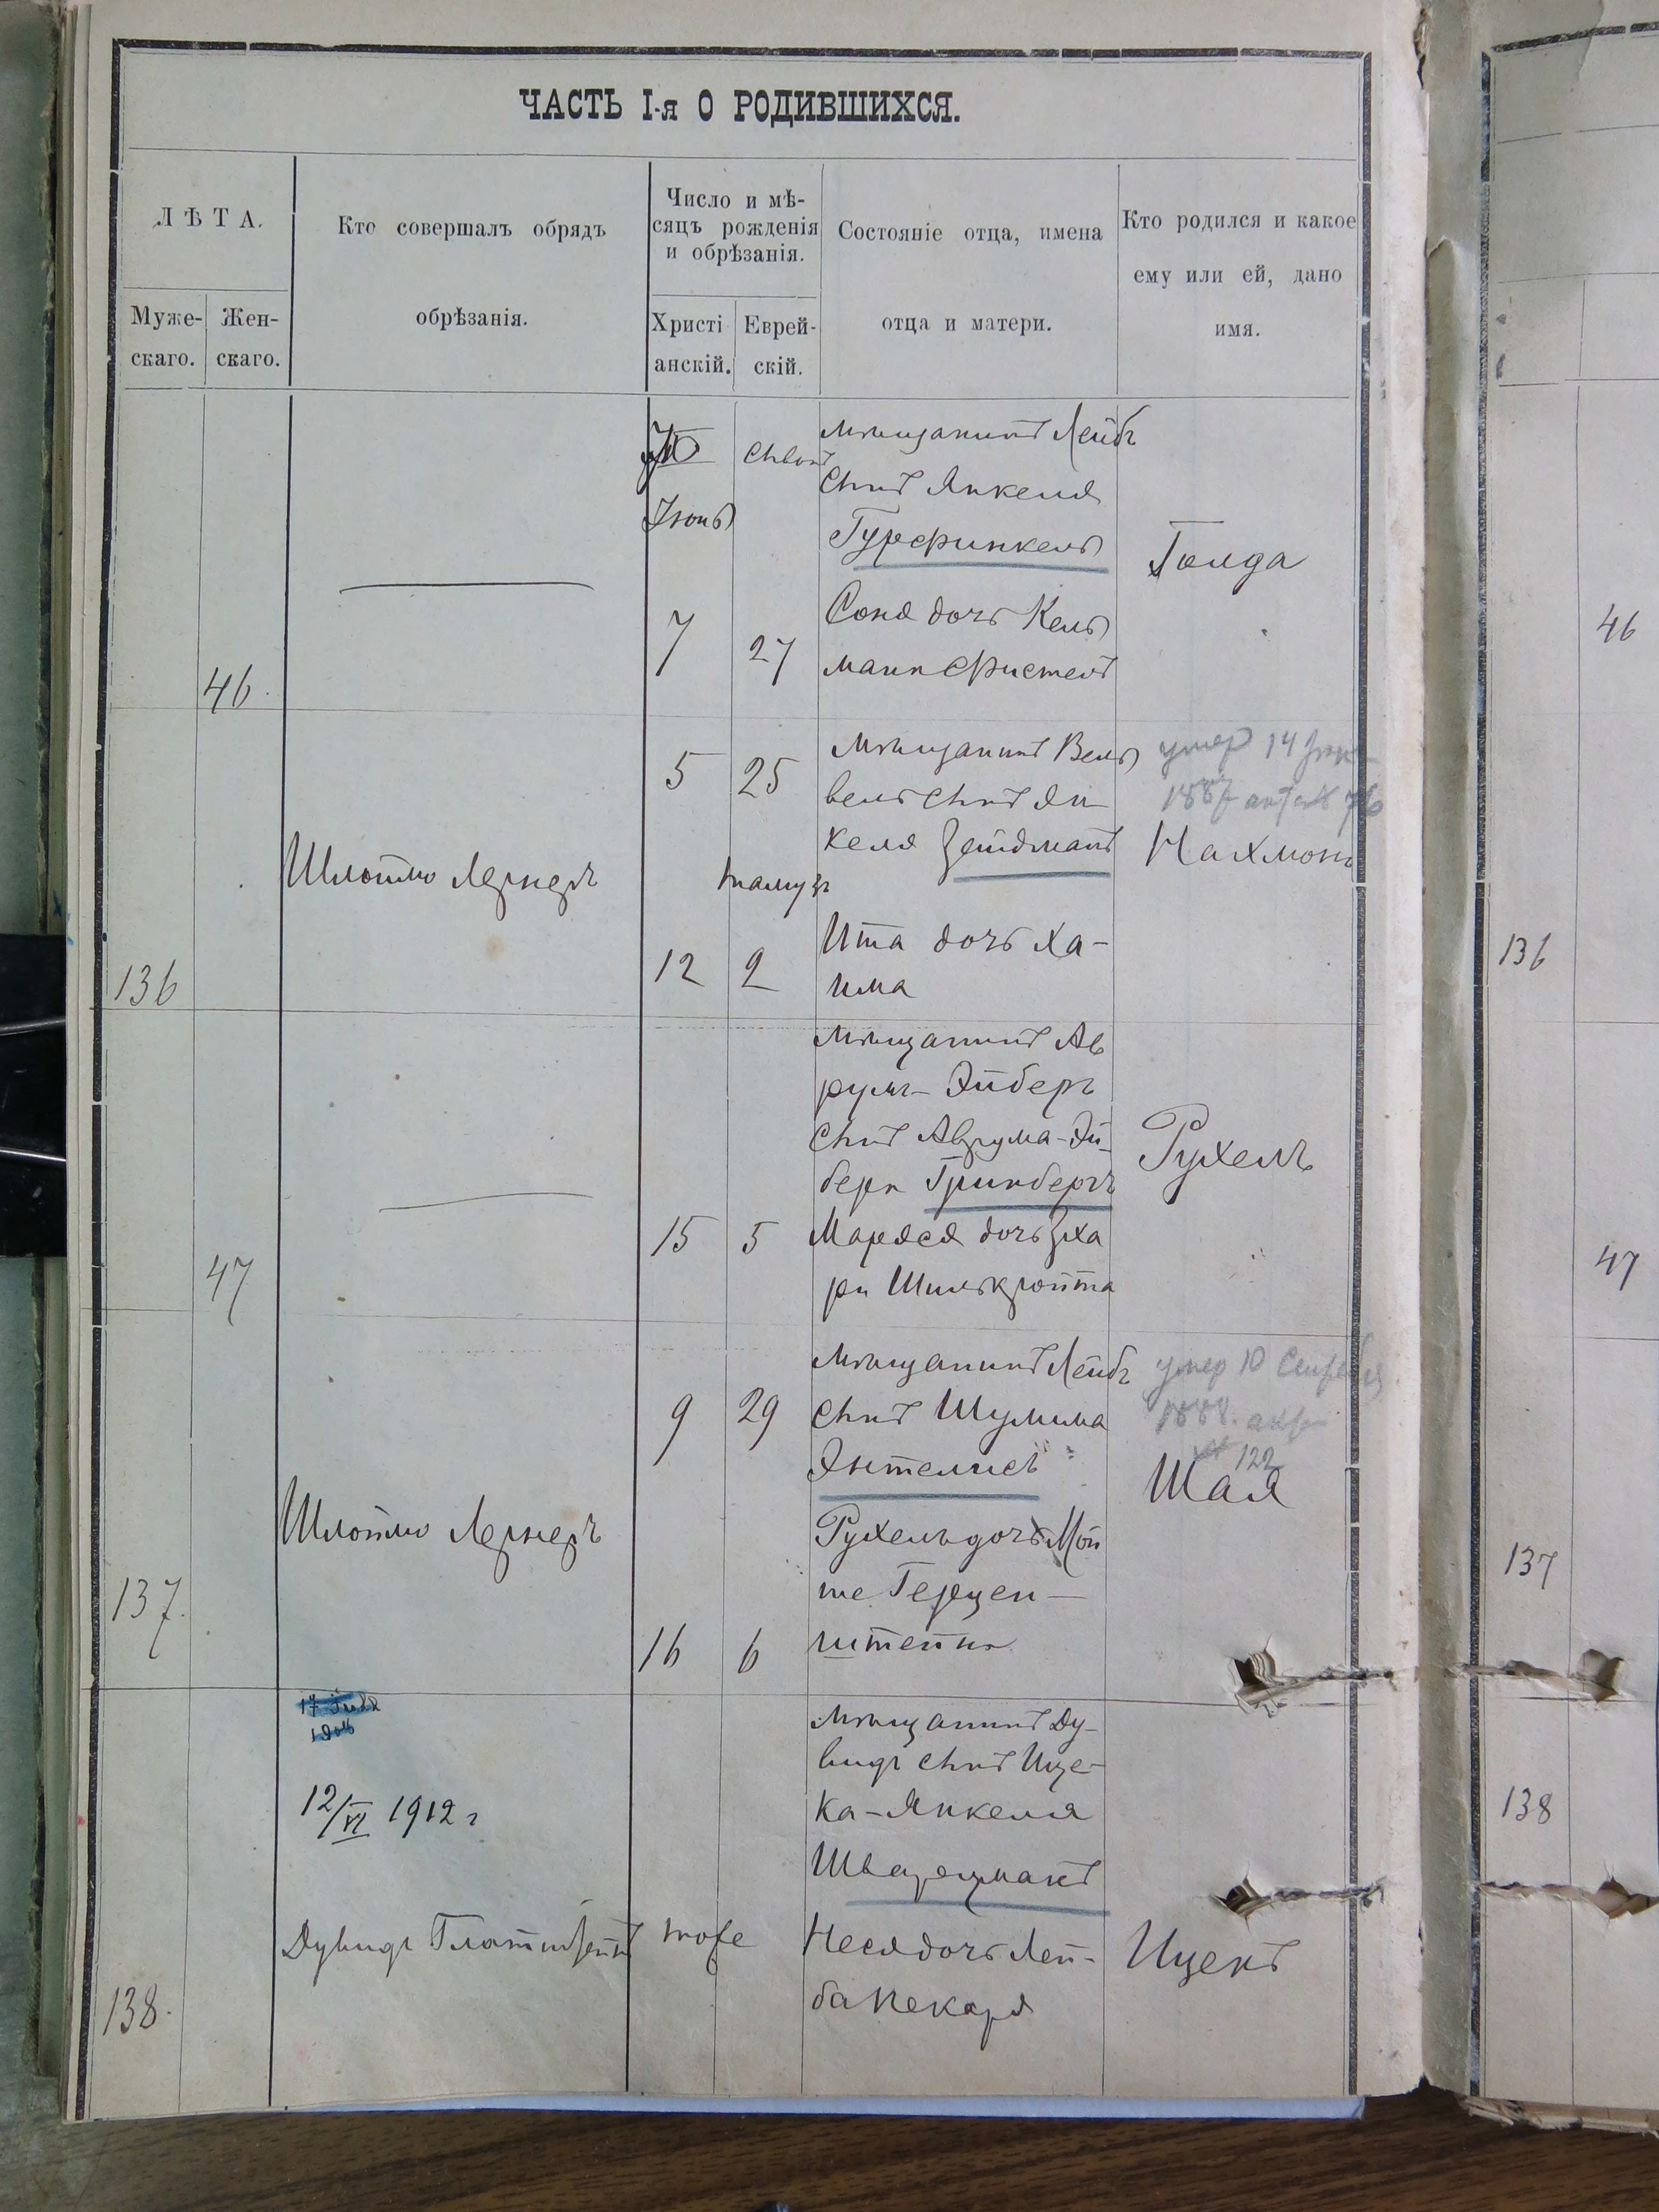 ЧАСТЬ I-я О РОДИВШИХСЯ.
ЛѢТА.
Муже-
скаго.
Жен-
скаго.
Кто совершалъ обрядъ
обрѣзанія.
Число и мѣ-
сяцъ рожденія
и обрѣзанія.
Христі
анскій.
Еврей-
скій.
Состояніе отца, имена
отца и матери.
Кто родился и какое
ему или ей, дано
имя.
46
Іюнь
7
Сивонъ
27
Мѣщанинъ Лейбъ
сынъ Янкеля
Гурфинкель
Соня дочь Кель
манъ Фистель
Голда
46
136
Шлойме Лернеръ
5
12
25
тамузъ
2
Мѣщанинъ Вель
вель сынъ Ян
келя Зейдманъ
Ита дочь Ха-
има
умер 14
Нахмонъ
136
47
15
5
Мѣщанинъ Ав
румъ-Эйберъ
сынъ Аврума-Эй-
бера Гринбергъ
Маряся дочь Зха
ри Шилькройта
Рухель
47
137.
Шлойме Лернеръ
9
16
29
6
Мѣщанинъ Лейбъ
сынъ Шулима
Янтелисъ
Рухель дочь Мой
ше Герцен-
штейна
умер 10 Сентября
1888. акт
№ 122
Шая
137
138.
12/VI 1912 г
Дувидъ
тоже
Мѣщанинъ Ду-
видъ сынъ Ице-
ка-Янкеля
Шварцманъ
Неся дочь Лей-
ба Пекаря
Ицекъ
138